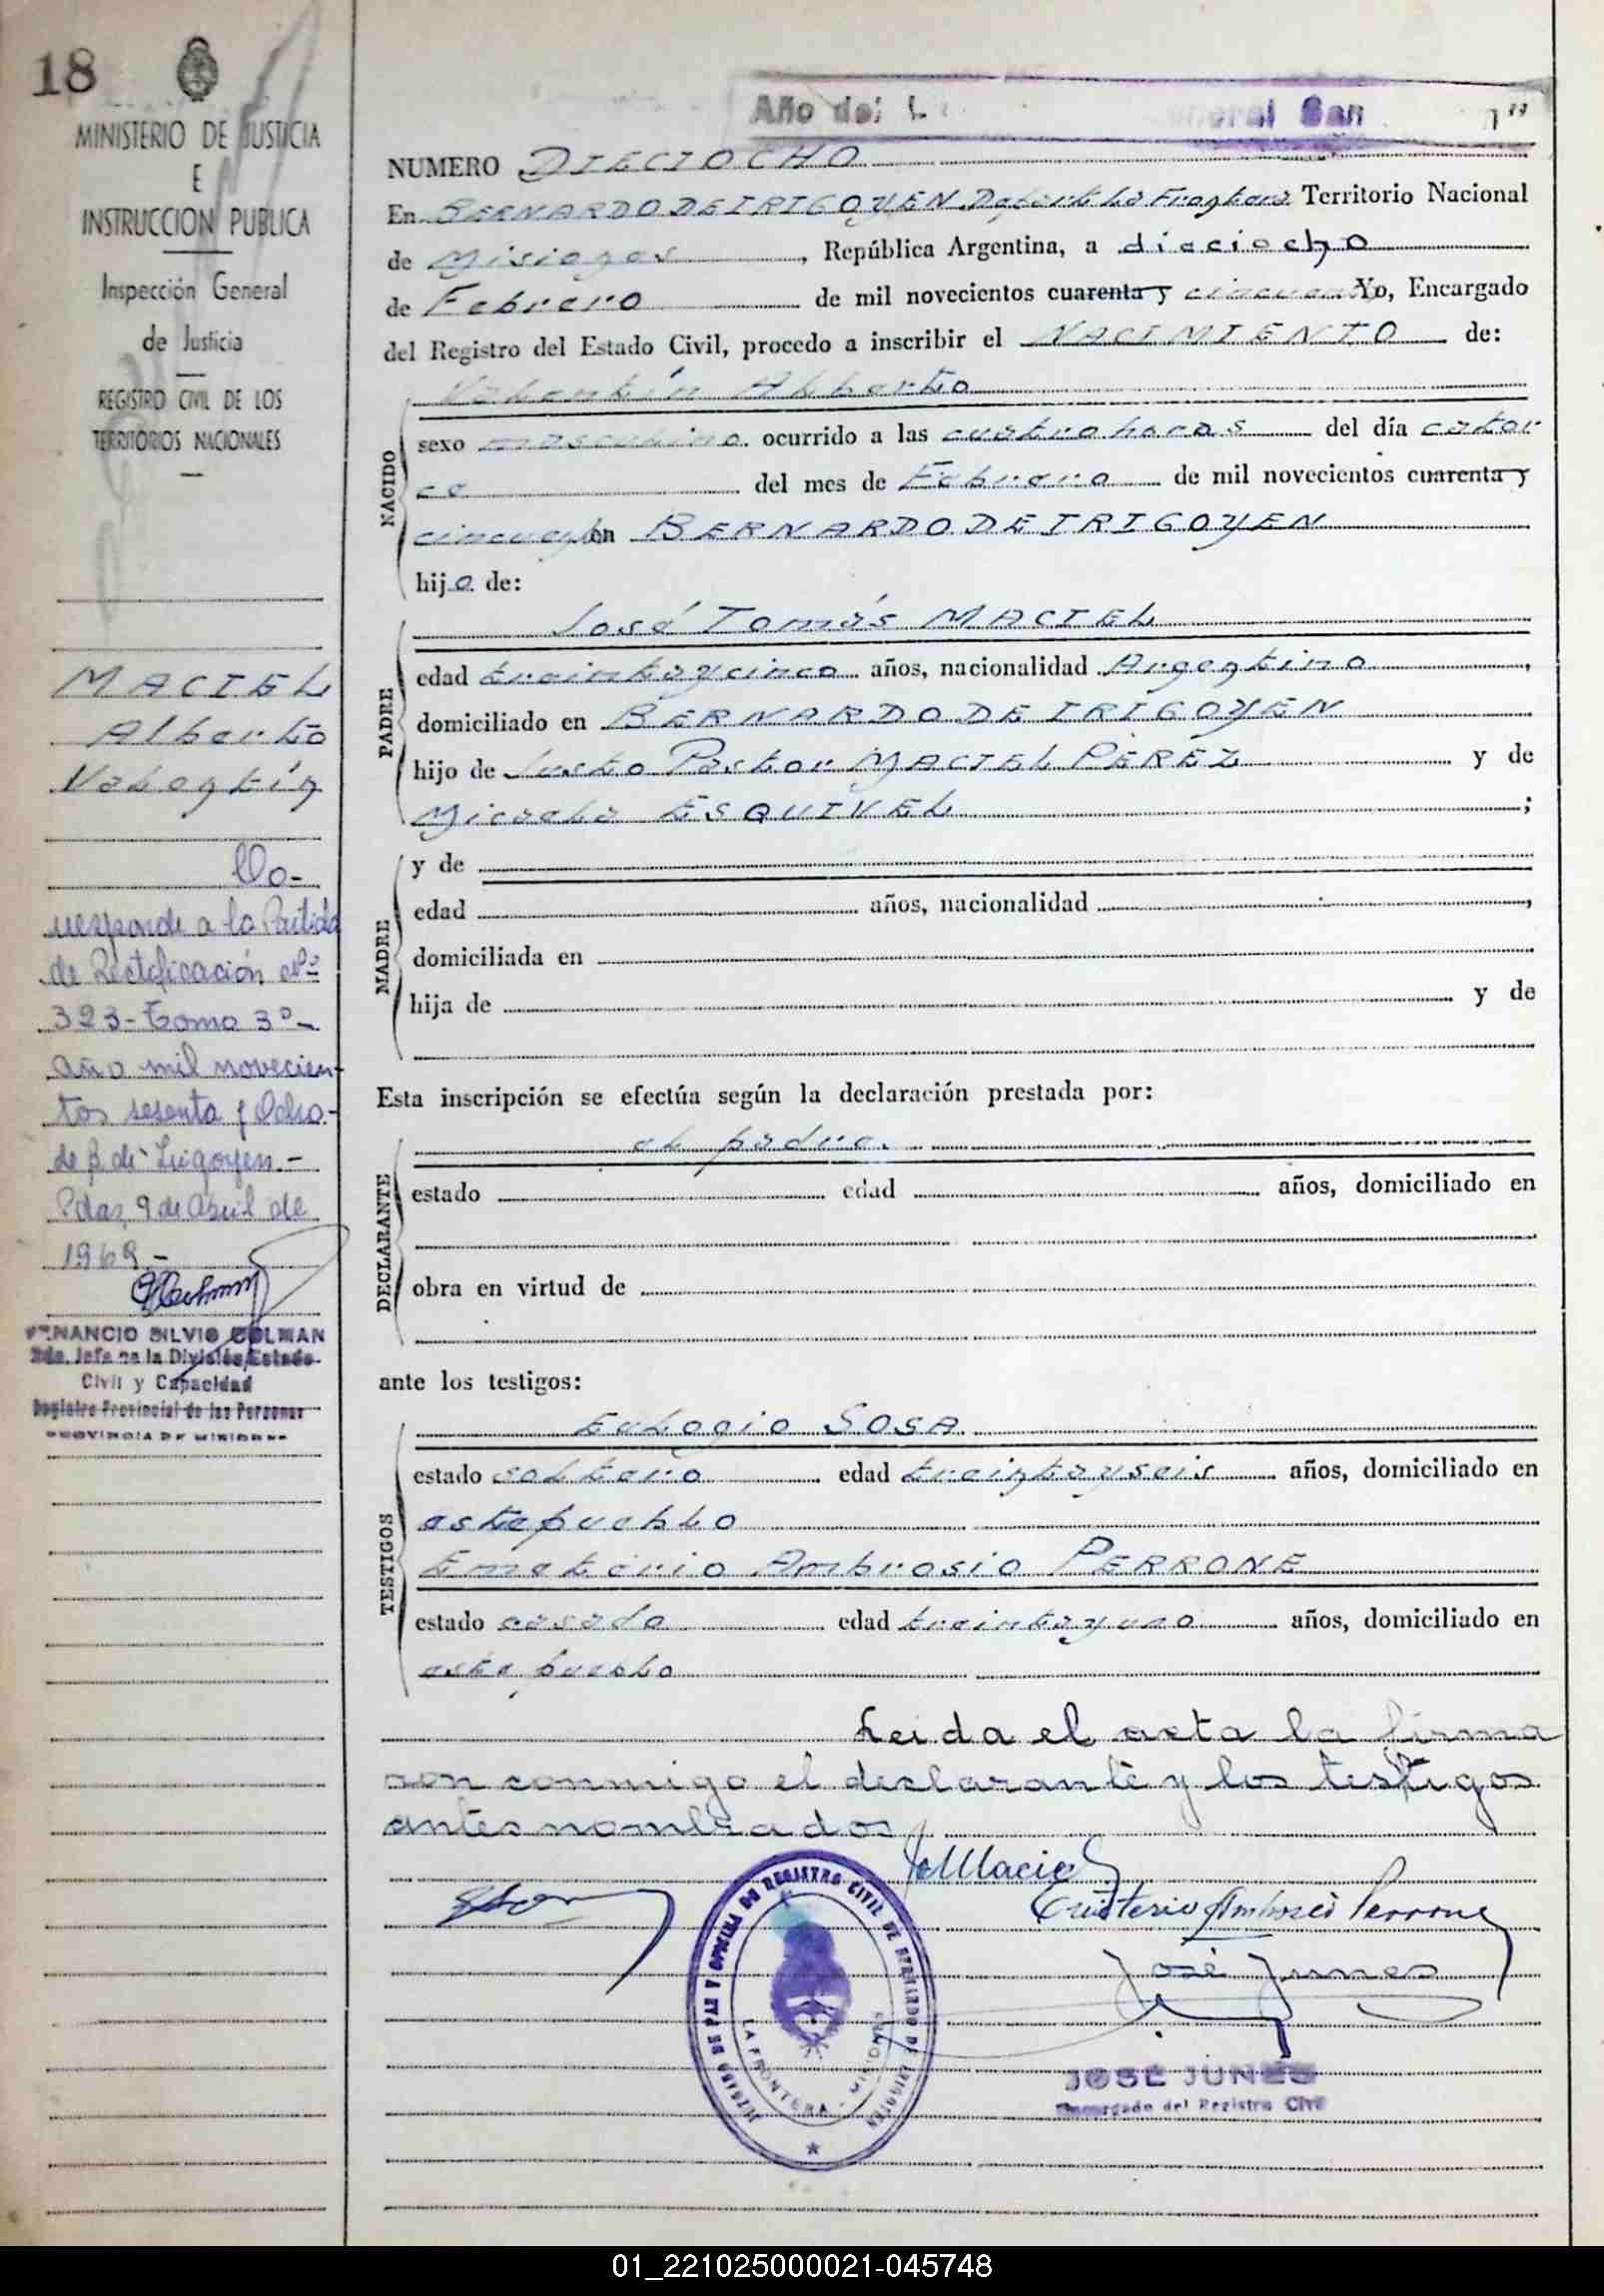 18
MINISTERIO DE JUSTICIA
E
INSTRUCCION PUBLICA
Inspección General
de Justicia
REGISTRO CIVIL DE LOS
TERRITORIOS NACIONALES
MACIEL
Alberto
Valentín
Co-
rresponde a la Partida
de Rectificación Nº
323- Tomo 3º-
año mil novecien-
tos sesenta y Ocho-
de B. de Irigoyen.-
Pdas, 9 de Abril de
1969.-
VENANCIO SILVIO COLMAN
2do. Jefe de la División Estado
Civil y Capacidad
Registro Provincial de las Personas
PROVINCIA DE MISIONES
Año del L General San
NUMERO DIECIOCHO
En BERNARDO DE IRIGOYEN Depart. La Frontera Territorio Nacional
de Misiones, República Argentina, a dieciocho
de Febrero de mil novecientos cuarenta y cincuenta Yo, Encargado
del Registro del Estado Civil, procedo a inscribir el NACIMIENTO de:
Valentín Alberto
NACIDO
sexo masculino ocurrido a las cuatro horas del día cator
ce del mes de Febrero de mil novecientos cuarenta y
cincuenta en BERNARDO DE IRIGOYEN
hijo de:
José Tomás MACIEL
PADRE
edad treinta y cinco años, nacionalidad Argentino,
domiciliado en BERNARDO DE IRIGOYEN
hijo de Justo Pastor MACIEL PEREZ y de
Micaela ESQUIVEL;
MADRE
y de
edad años, nacionalidad,
domiciliada en
hija de y de
Esta inscripción se efectúa según la declaración prestada por:
el padre.
DECLARANTE
estado edad años, domiciliado en
obra en virtud de
ante los testigos:
Eulogio SOSA
TESTIGOS
estado soltero edad treinta y seis años, domiciliado en
este pueblo
Emeterio Ambrosio PERRONE
estado casado edad treinta y uno años, domiciliado en
este pueblo
Leida el acta la firma
ron conmigo el declarante y los testigos
antes nombrados
JMaciel
Emeterio Ambrosio Perrone
José Junes
JUZGADO DE PAZ Y OFICINA DE REGISTRO CIVIL DE BERNARDO DE IRIGOYEN
LA FRONTERA - MISIONES
JOSÉ JUNES
Encargado del Registro Civil
01_221025000021-045748